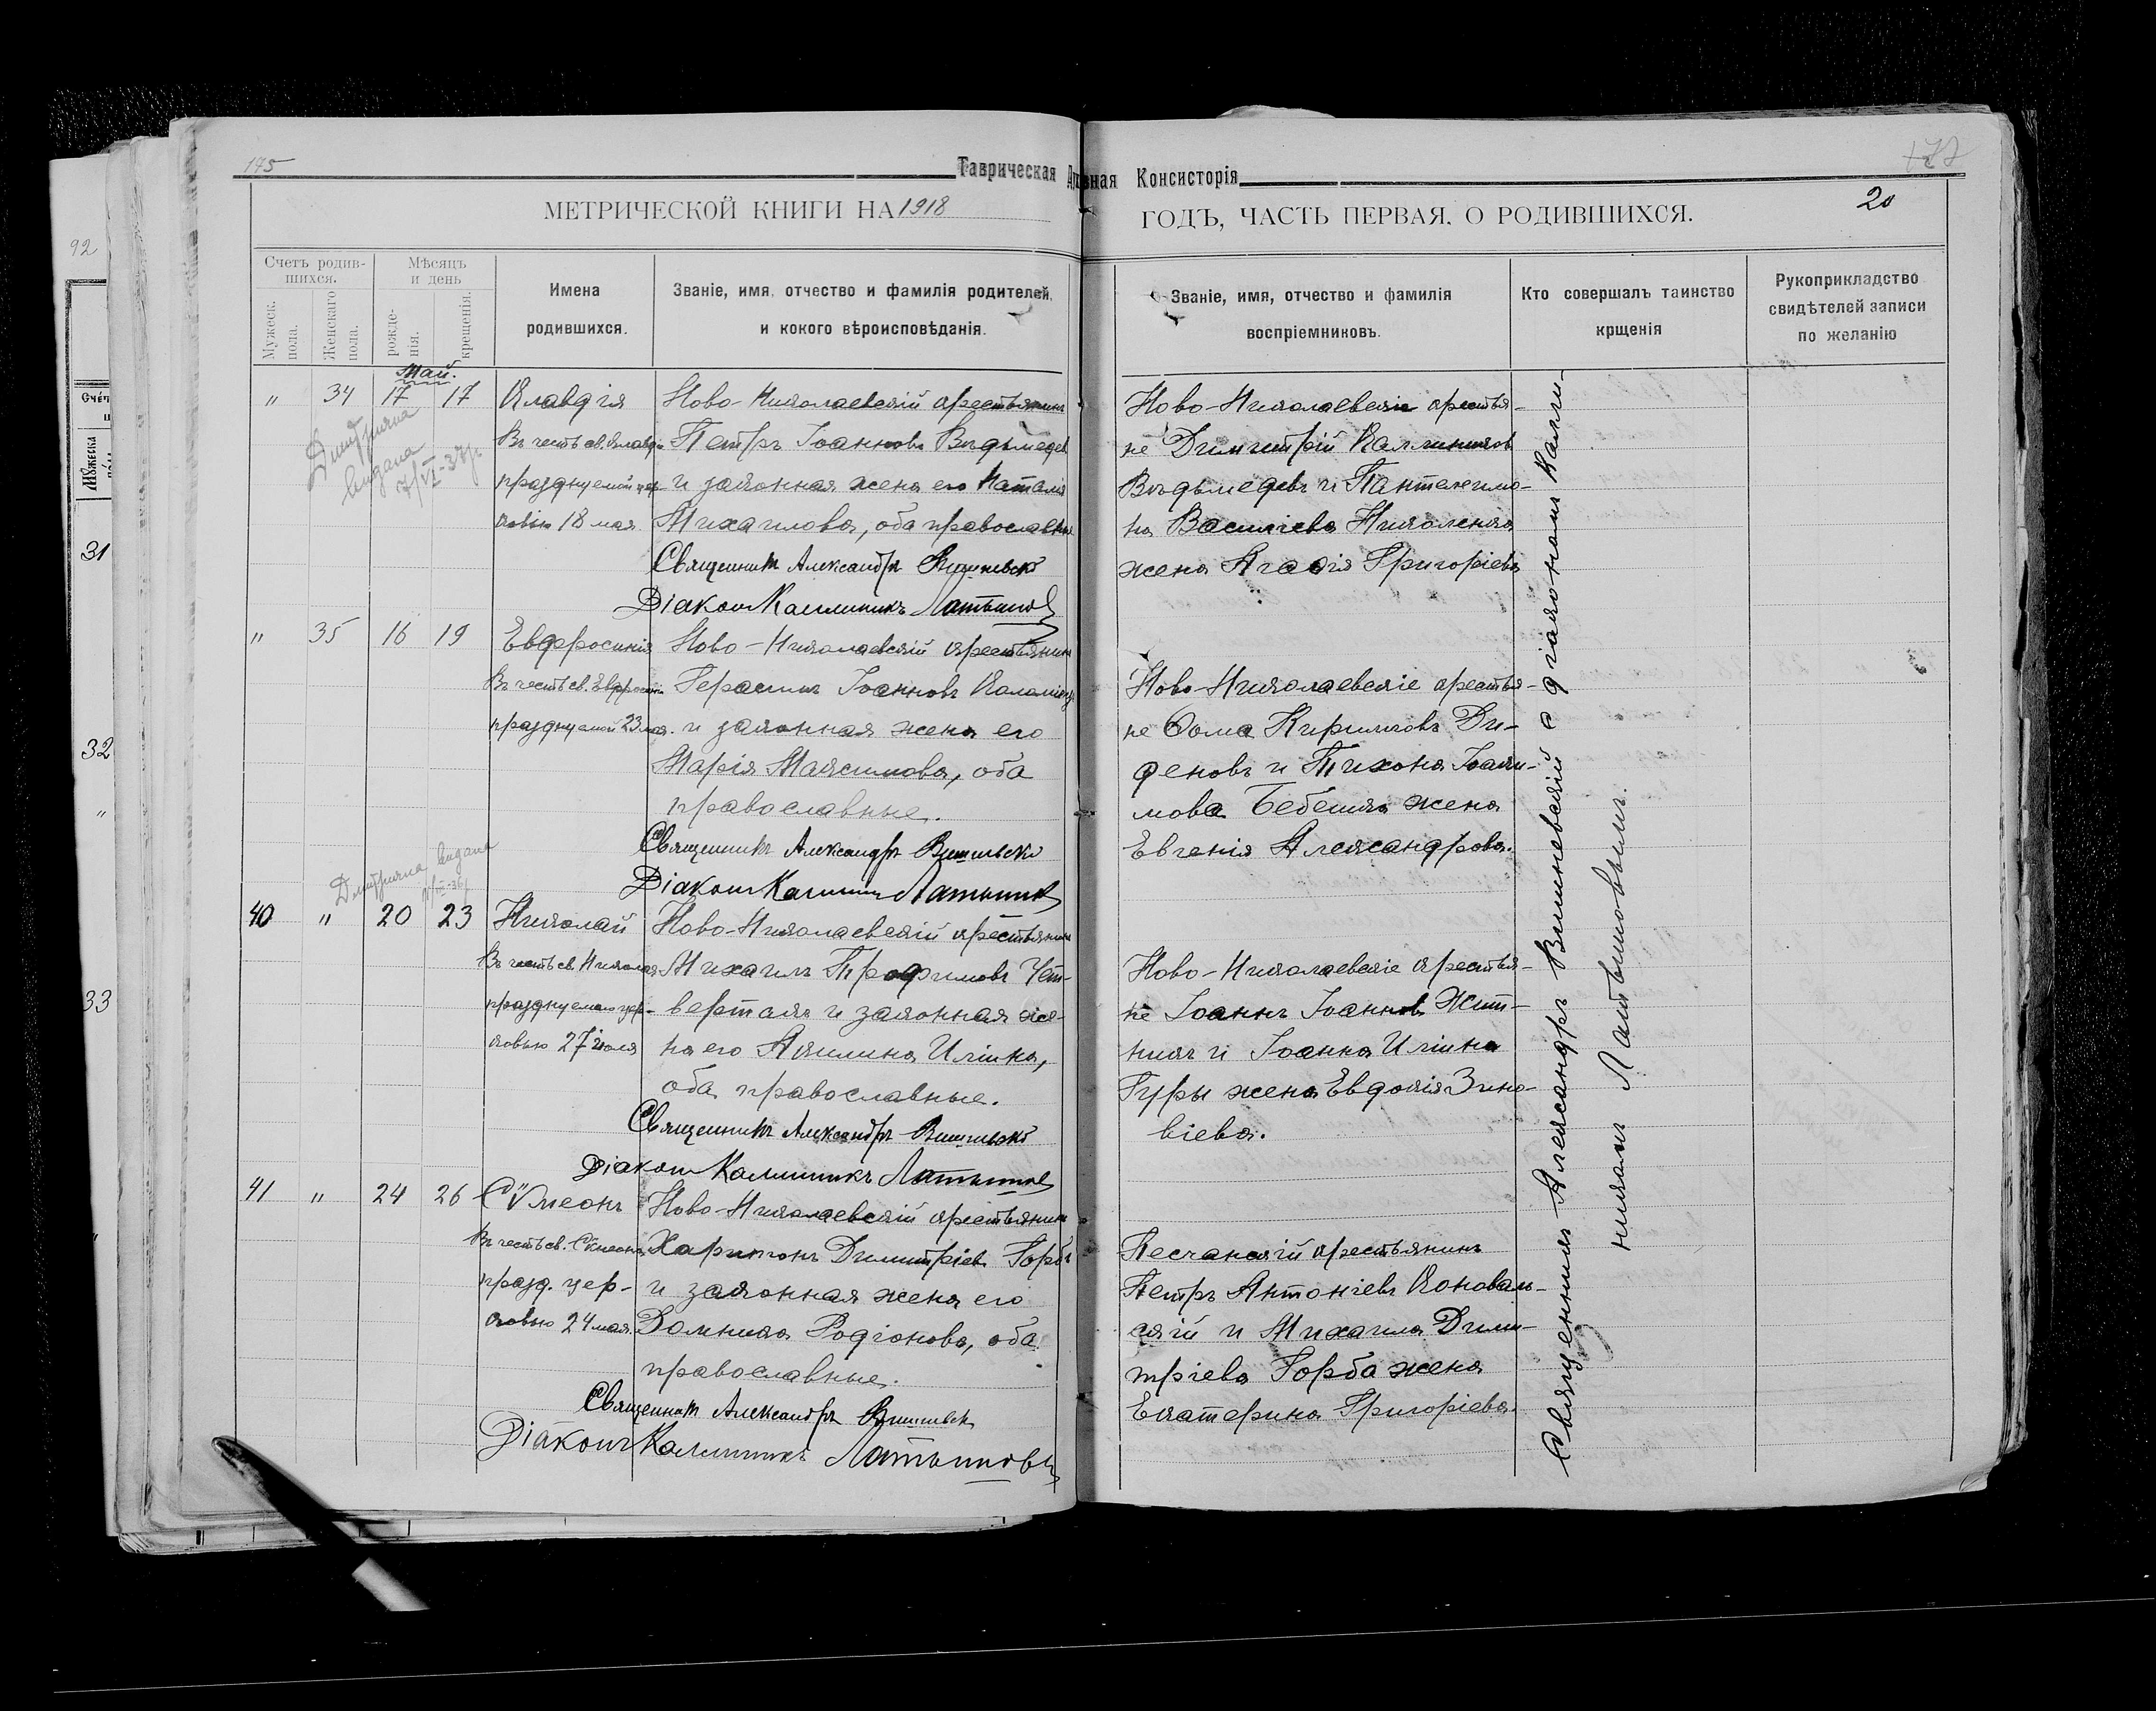 175
Таврическая Духовная Консисторія
177
МЕТРИЧЕСКОЙ КНИГИ НА 1918
ГОДЪ, ЧАСТЬ ПЕРВАЯ, О РОДИВШИХСЯ.
20
92
Счетъ родив-
шихся.
Мужеск.
пола.
Женскаго
пола.
Мѣсяцъ
и день
рожде-
нія.
крещенія.
Имена
родившихся.
Званіе, имя, отчество и фамилія родителей,
и кокого вѣроисповѣданія.
Званіе, имя, отчество и фамилія
воспріемниковъ.
Кто совершалъ таинство
крщенія
Рукоприкладство
свидѣтелей записи
по желанію
31
32
"
33
Май.
" 34 17 17
Клавдія
Въ честь св. Клавдіи
празднуемой цер-
ковію 18 мая
Ново-Николаевскій крестьянинъ
Петръ Іоанновъ
и законная жена его Наталія
Михаилова, оба православные
Священникъ Александръ Вишневскій
Діаконъ Каллиникъ Латышовъ
Ново-Николаевскіе крестья-
не Димитрій Каллиниковъ
и Пантелеимо-
на Василіева Николенка
жена Агафія Григоріева
выдана
7/VI-37г.
" 35 16 19
Евфросинія
Въ честь св. Евфросиніи
празднуемой 23 мая.
Ново-Николаевскій крестьянинъ
Герасимъ Іоанновъ
и законная жена его
Марія Максимова, оба
православные.
Священникъ Александръ Вишневскій
Діаконъ Каллиникъ Латышовъ
Ново-Николаевскіе крестья-
не Ѳома Кирилловъ Ди-
деновъ и Тихона Іоаки-
мова Бебешка жена
Евгенія Александрова.
выдана
40 " 20 23
Николай
Въ честь св. Николая
празднуемаго цер-
ковью 27 іюля
Ново-Николаевскій крестьянинъ
Михаилъ Трофимовъ Чет-
вертакъ и законная же-
на его Акилина Иліина,
оба православные.
Священникъ Александръ Вишневскій
Діаконъ Каллиникъ Латышовъ
Ново-Николаевскіе крестья-
не Іоаннъ Іоанновъ Жит-
никъ и Іоанна Иліина
Гуры жена Евдокія Зино-
віева.
41 " 24 26
Сѵмеонъ
Въ честь св. Сѵмеона
празд. цер-
ковью 24 мая.
Ново-Николаевскій крестьянинъ
Харитонъ Димитріевъ Горбъ
и законная жена его
Домника Родіонова, оба
православные.
Священникъ Александръ Вишневскій
Діаконъ Каллиникъ Латышовъ
Песчанскій крестьянинъ
Петръ Антоніевъ Коноваль-
скій и Михаила Дими-
тріева Горба жена
Екатерина Григоріева.
Священникъ Александръ Вишневскій с діакономъ Калли-
никомъ Латышовымъ.